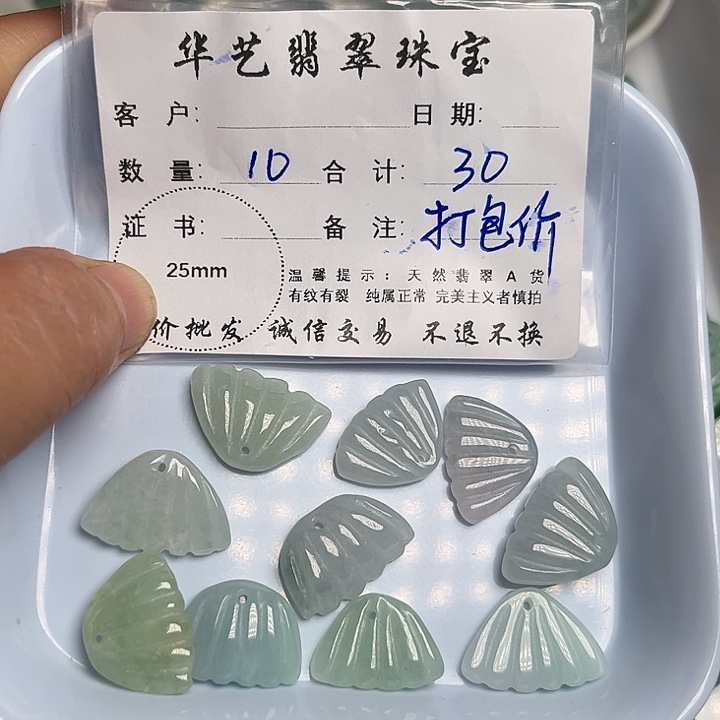 华艺翡翠珠宝
客 户： 日 期：
数 量： 10 合 计： 30
证 书： 备 注： 打包价
25mm
温馨提示：天然翡翠A货
有纹有裂 纯属正常 完美主义者慎拍
价批发 诚信交易 不退不换